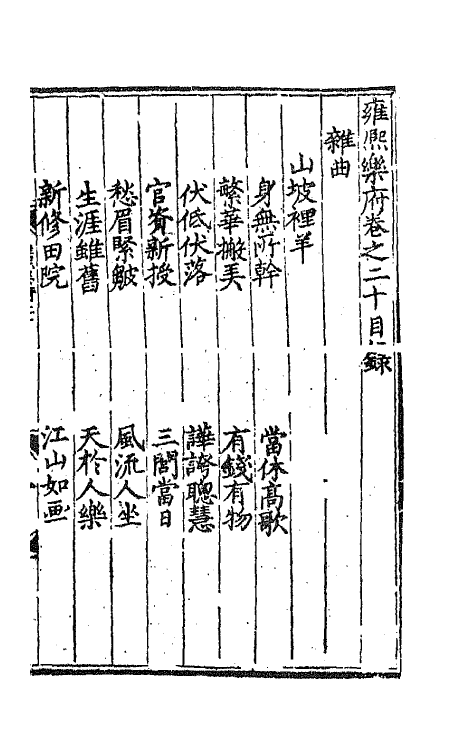 雍熙樂府卷之二十目錄
雜曲
山坡裡羊
身無所幹　當休高歌
繁華搬弄　有錢有物
伏低伏落　譁誇聰慧
官資新授　三閭當日
愁眉緊皺　風流人坐
生涯雖舊　天於人樂
新修田院　江山如画